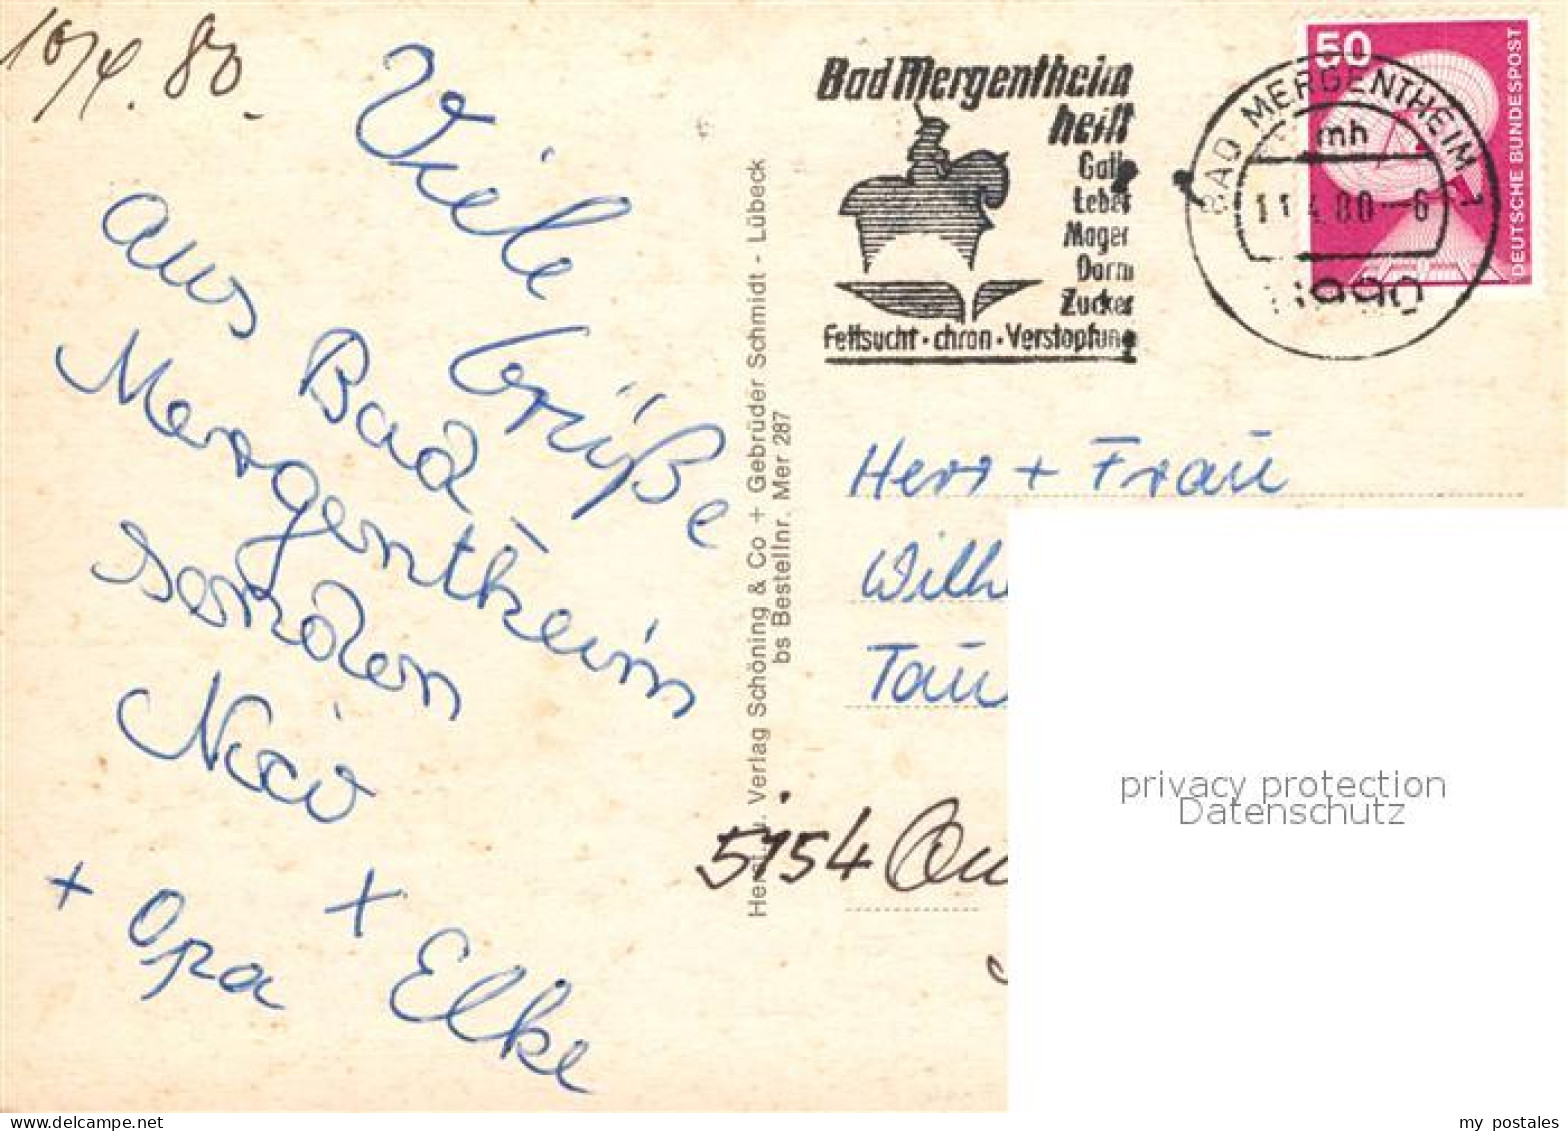 10/4. 80.
Viele
Grüße
aus Bad
Mergentheim
senden
Nico
+ Elke
+ Opa
Herst. u. Verlag Schöning & Co + Gebrüder Schmidt - Lübeck
bs Bestellnr. Mer 287
Bad Mergentheim
heilt
Galle
Leber
Magen
Darm
Zucker
Fettsucht · chron · Verstopfung
BAD MERGENTHEIM 1
mh
11.4.80-6
6990
50
DEUTSCHE BUNDESPOST
Herr + Frau
Wilh
Tau
5154
privacy protection
Datenschutz
my postales